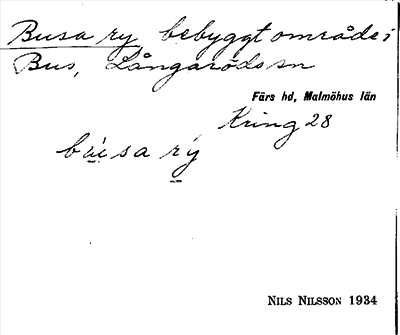 Busa ry bebyggt område i
Bus, Långaröds sn
Färs hd, Malmöhus län
Kring 28
bú̱sa rý̱
NILS NILSSON 1934